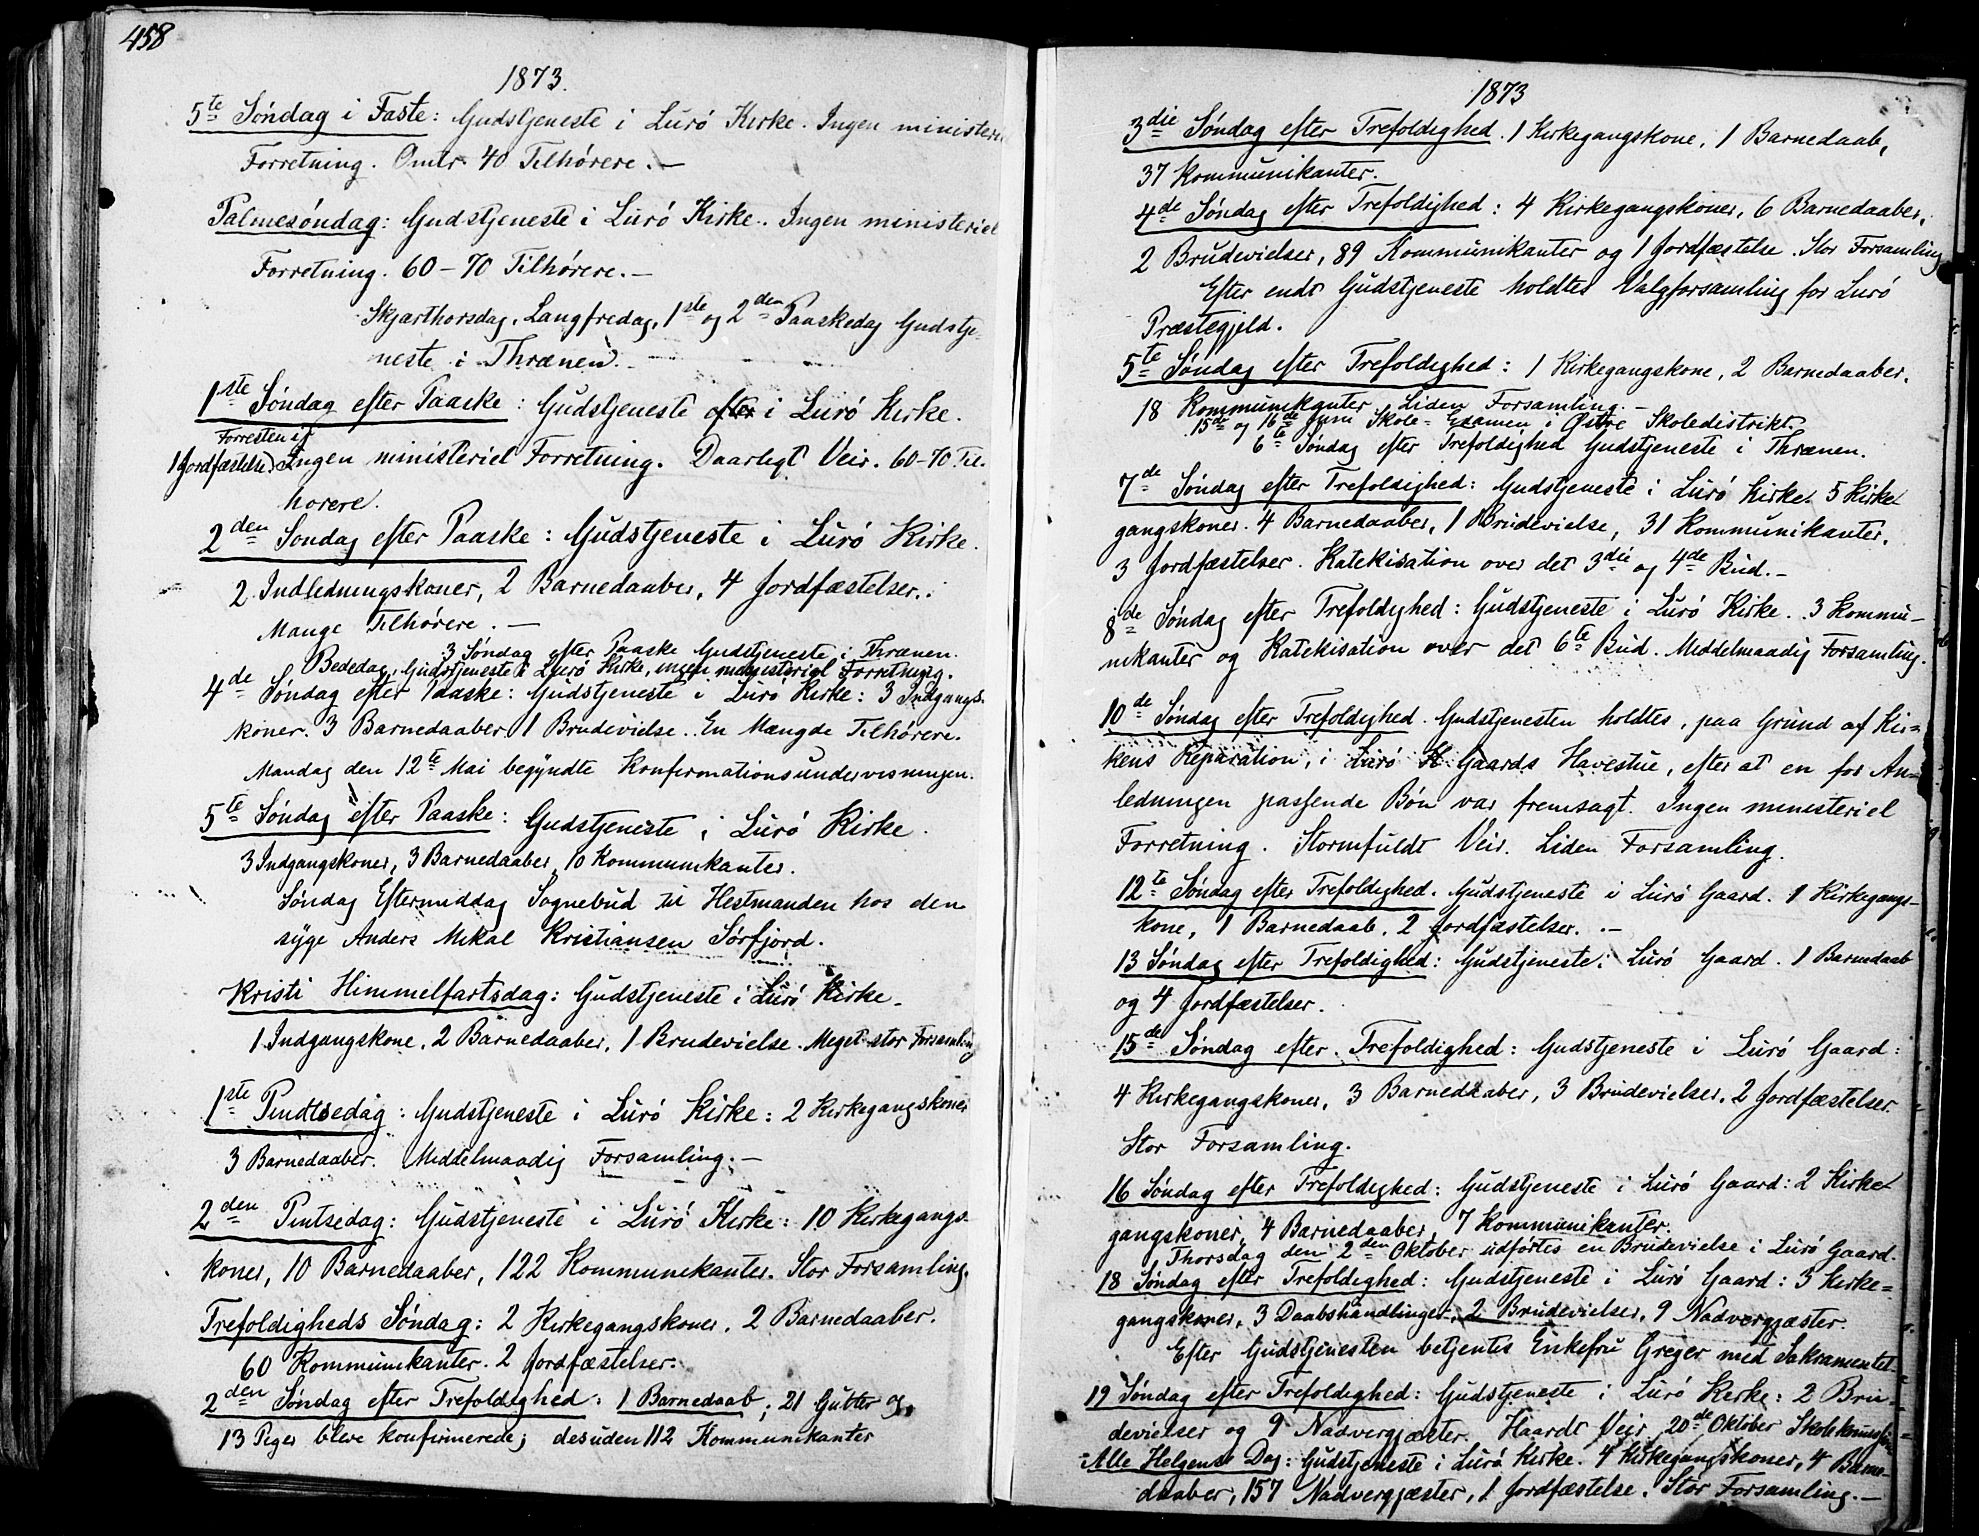 458
1873.
5te Søndag i Faste: Gudstjeneste i Lurö Kirke. Ingen ministeriel
Forretning. Omtr. 40 Tilhørere. —
Palmesöndag: Gudstjeneste i Lurö Kirke. Ingen ministeriel
Forretning. 60-70 Tilhörere. —
Skjærthorsdag, Langfredag, 1ste og 2den Paaskedag Gudstje-
neste i Thrænen.
1ste Søndag efter Paaske: Gudstjeneste efter i Lurö Kirke.
Forresten
1 Jordfæstelse. Ingen ministeriel Forretning. Daarligt Veir. 60-70 Til-
hörere.
2den Søndag efter Paaske: Gudstjeneste i Lurö Kirke.
2 Indledningskoner, 2 Barnedaaber, 4 Jordfæstelser.
Mange Tilhørere. —
3 Søndag efter Paaske Gudstjeneste i Thrænen.
Bededag, Gudstjeneste i Lurö Kirke, ingen ministeriel Forretning.
4de Søndag efter Paaske: Gudstjeneste i Lurö Kirke: 3 Indgangs-
koner. 3 Barnedaaber 1 Brudevielse. En Mængde Tilhørere.
Mandag den 12te Mai begyndte Konfirmationsundervisningen.
5te Søndag efter Paaske: Gudstjeneste i Lurö Kirke.
3 Indgangskoner, 3 Barnedaaber, 10 Kommunikanter.
Søndag Eftermiddag Sognebud til Hestmanden hos den
syge Anders Mikal Kristiansen Sörfjord.
Kristi Himmelfartsdag: Gudstjeneste i Lurö Kirke.
1 Indgangskone, 2 Barnedaaber, 1 Brudevielse. Meget stor Forsamling
1ste Pindtsedag: Gudstjeneste i Lurö Kirke: 2 Kirkegangskoner
3 Barnedaaber. Middelmaadig Forsamling. —
2den Pintsedag: Gudstjeneste i Lurö Kirke: 10 Kirkegangs-
koner, 10 Barnedaaber, 122 Kommunikanter. Stor Forsamling.
Trefoldigheds Søndag: 2 Kirkegangskoner. 2 Barnedaaber.
60 Kommunikanter. 2 Jordfæstelser.
2den Søndag efter Trefoldighed: 1 Barnedaab; 21 Gutter og
13 Piger bleve konfirmerede; desuden 112 Kommunikanter
1873
3die Søndag efter Trefoldighed. 1 Kirkegangskone, 1 Barnedaab,
37 Kommunikanter.
4de Søndag efter Trefoldighed: 4 Kirkegangskoner, 6 Barnedaaber,
2 Brudevielser, 89 Kommunikanter og 1 Jordfæstelse. Stor Forsamling
Efter endt Gudstjeneste holdtes Valgforsamling for Lurö
Præstegjeld.
5te Søndag efter Trefoldighed: 1 Kirkegangskone, 2 Barnedaaber.
18 Kommunikanter Liden Forsamling. —
15de og 16de Juni Skole-Examen i Østre Skoledistrikt.
6te Søndag efter Trefoldighed Gudstjeneste i Thrænen.
7de Søndag efter Trefoldighed: Gudstjeneste i Lurö Kirke. 5 Kirke-
gangskoner. 4 Barnedaaber, 1 Brudevielse, 31 Kommunikanter.
3 Jordfæstelser. Katekisation over det 3die og 4de Bud. —
8de Søndag efter Trefoldighed: Gudstjeneste i Lurö Kirke. 3 Kommu-
nikanter og Katekisation over det 6te Bud. Middelmaadig Forsamling.
10de Søndag efter Trefoldighed. Gudstjenesten holdtes, paa Grund af Kir-
kens Reparation, i Lurö K Gaards Havestue, efter at en for An-
ledningen passende Bön var fremsagt. Ingen ministeriel
Forretning. Stormfuldt Veir. Liden Forsamling.
12te Søndag efter Trefoldighed. Gudstjeneste i Lurö Gaard. 1 Kirkegangs-
kone, 1 Barnedaab, 2 Jordfæstelser. —
13 Søndag efter Trefoldighed: Gudstjeneste i Lurö Gaard. 1 Barnedaab
og 4 Jordfæstelser.
15de Søndag efter Trefoldighed: Gudstjeneste i Lurö Gaard:
4 Kirkegangskoner, 3 Barnedaaber, 3 Brudevielser, 2 Jordfæstelser.
Stor Forsamling.
16 Søndag efter Trefoldighed: Gudstjeneste i Lurö Gaard: 2 Kirke-
gangskoner, 4 Barnedaaber, 7 Kommunikanter.
Thorsdag den 2den Oktober udførtes en Brudevielse i Lurö Gaard.
18 Søndag efter Trefoldighed: Gudstjeneste i Lurö Gaard: 3 Kirke-
gangskoner, 3 Daabshandlinger, 2 Brudevielser, 9 Nadvergjæster.
Efter Gudstjenesten betjentes Enkefru Greger med Sakramentet
19 Søndag efter Trefoldighed: Gudstjeneste i Lurö Kirke: 2 Bru-
devielser og 9 Nadvergjæster. Haardt Veir. 20de Oktober
Alle Helgens Dag: Gudstjeneste i Lurö Kirke. 4 Kirkegangskoner, 4 Barne-
daaber, 157 Nadvergjæster, 1 Jordfæstelse. Stor Forsamling. —